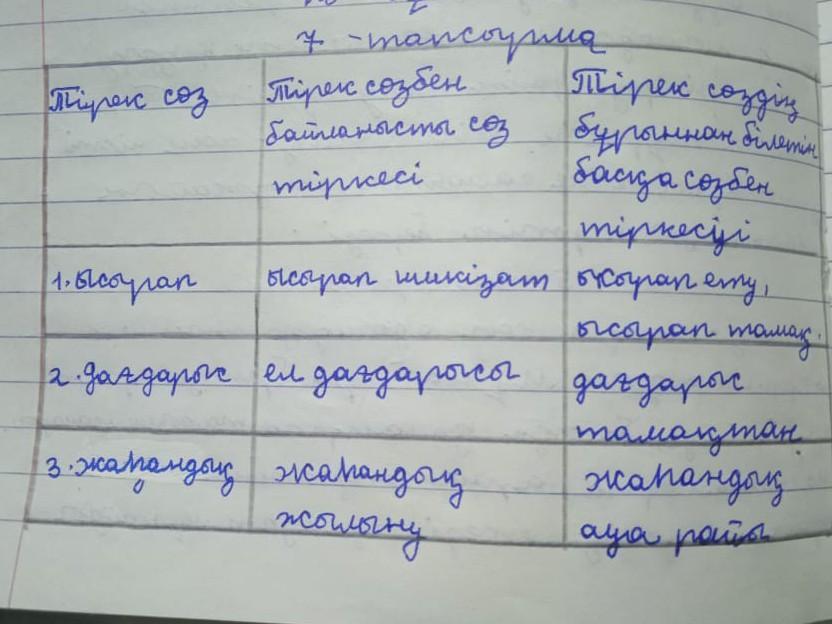 7 - тапсырма
Тірек сөз
Тірек сөзбен
байланысты сөз
тіркесі
Тірек сөздің
бұрыннан білетін
басқа сөзбен
тіркесуі
1. ысырап
ысырап шикізат
ысырап ету,
ысырап тамақ.
2. дағдарыс
ел дағдарысы
дағдарыс
тамақтан
3. жаһандық
жаһандық
жылыну
жаһандық
ауа райы